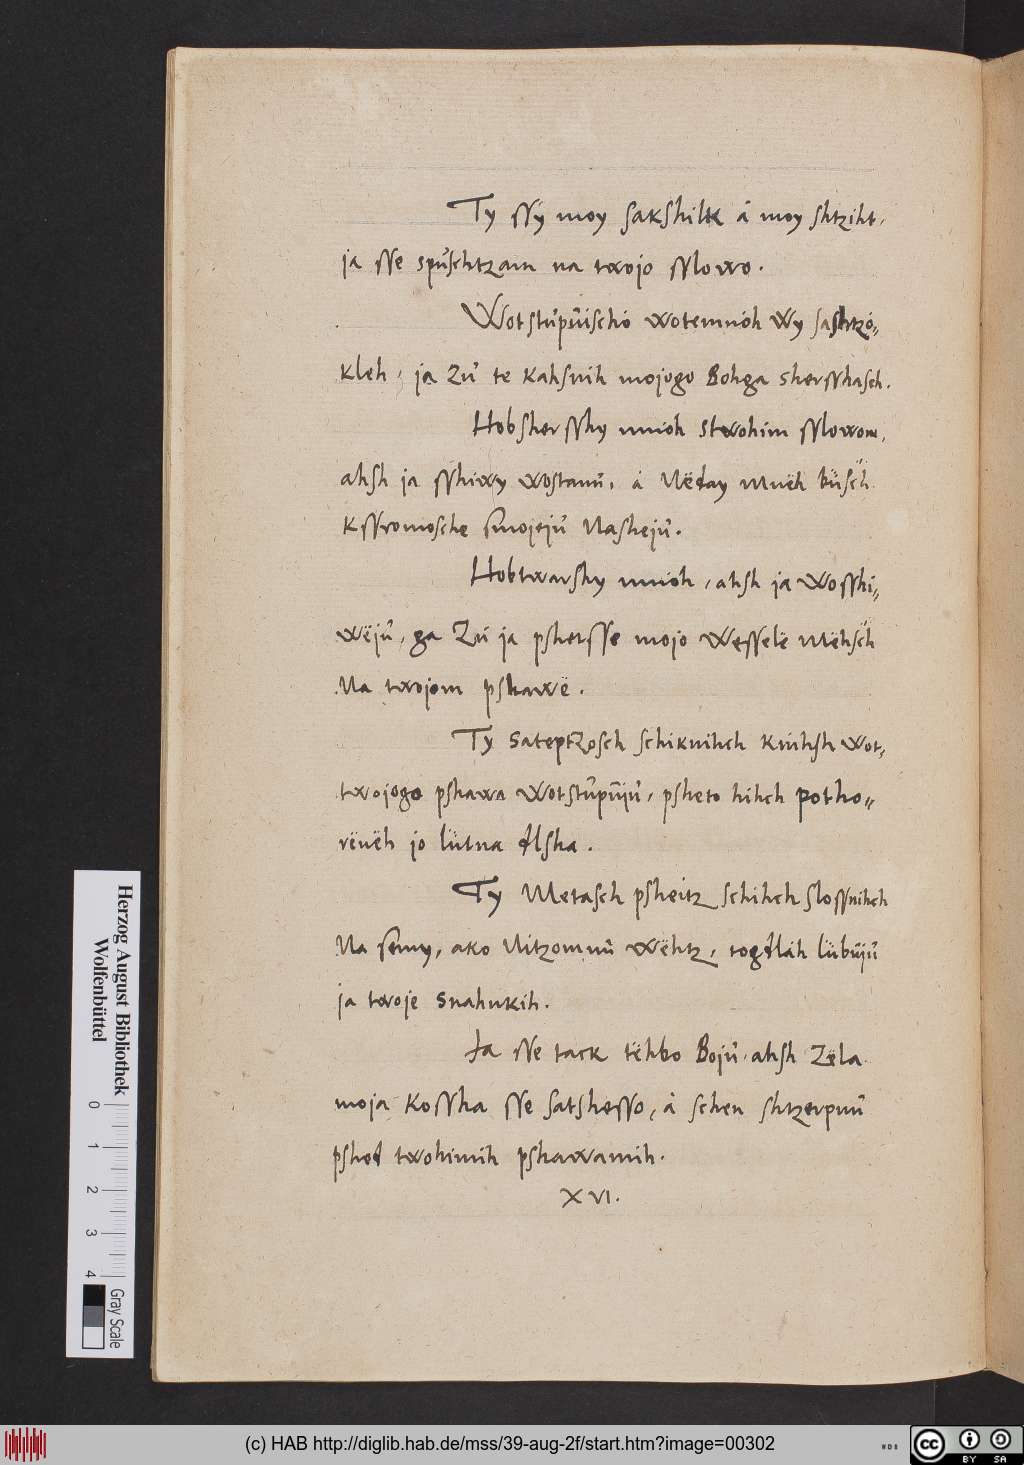 Ty ſſy moy ſakſhilk á moy ſhtziht,
ja ſſe spůſchtzam na twojo ſſlowo.
Wotſtupůiſchó wotemnóh Wy ſaſhtzó„
kleh, ja Zů te kahſnih mojogo Bohga sherſſhaſch.
Hobſherſſhy mnióh stwohim ſſlowom,
ahſh ja ſſhiwy wostanů, á Nëday Mnëh bůſch
kſſromoſche ſmojejů Naſhejů.
Hobtwarſhy mnióh, ahſh ja woſſhi„
wëjů, ga Zů ja pſherſſe mojo Weſſelë Mëhſch
Na twojom pſhawë.
Ty sateptzoſch ſchiknihch knihſh wot,
twojogo pſhawa wotſtupůjů, pſheto hihch potho„
rëuëh jo lütna dlſha.
Ty Metaſch pſheitz ſchihch ſloſſnihch
Na ſemy, ako Nitzomnů wëhtz, togdláh lübůjů
ja twoje snahnkih.
Ja ſſe tack tëhbo Bojů, ahſh Zëla
moja koſſha ſſe ſatſheſſo, á ſchen ſhtzerpnů
pſhed twohimih pſhawamih.
XVI.
Herzog August Bibliothek
Wolfenbüttel
0 1 2 3 4
Gray Scale
(c) HAB http://diglib.hab.de/mss/39-aug-2f/start.htm?image=00302
WDB
cc BY SA